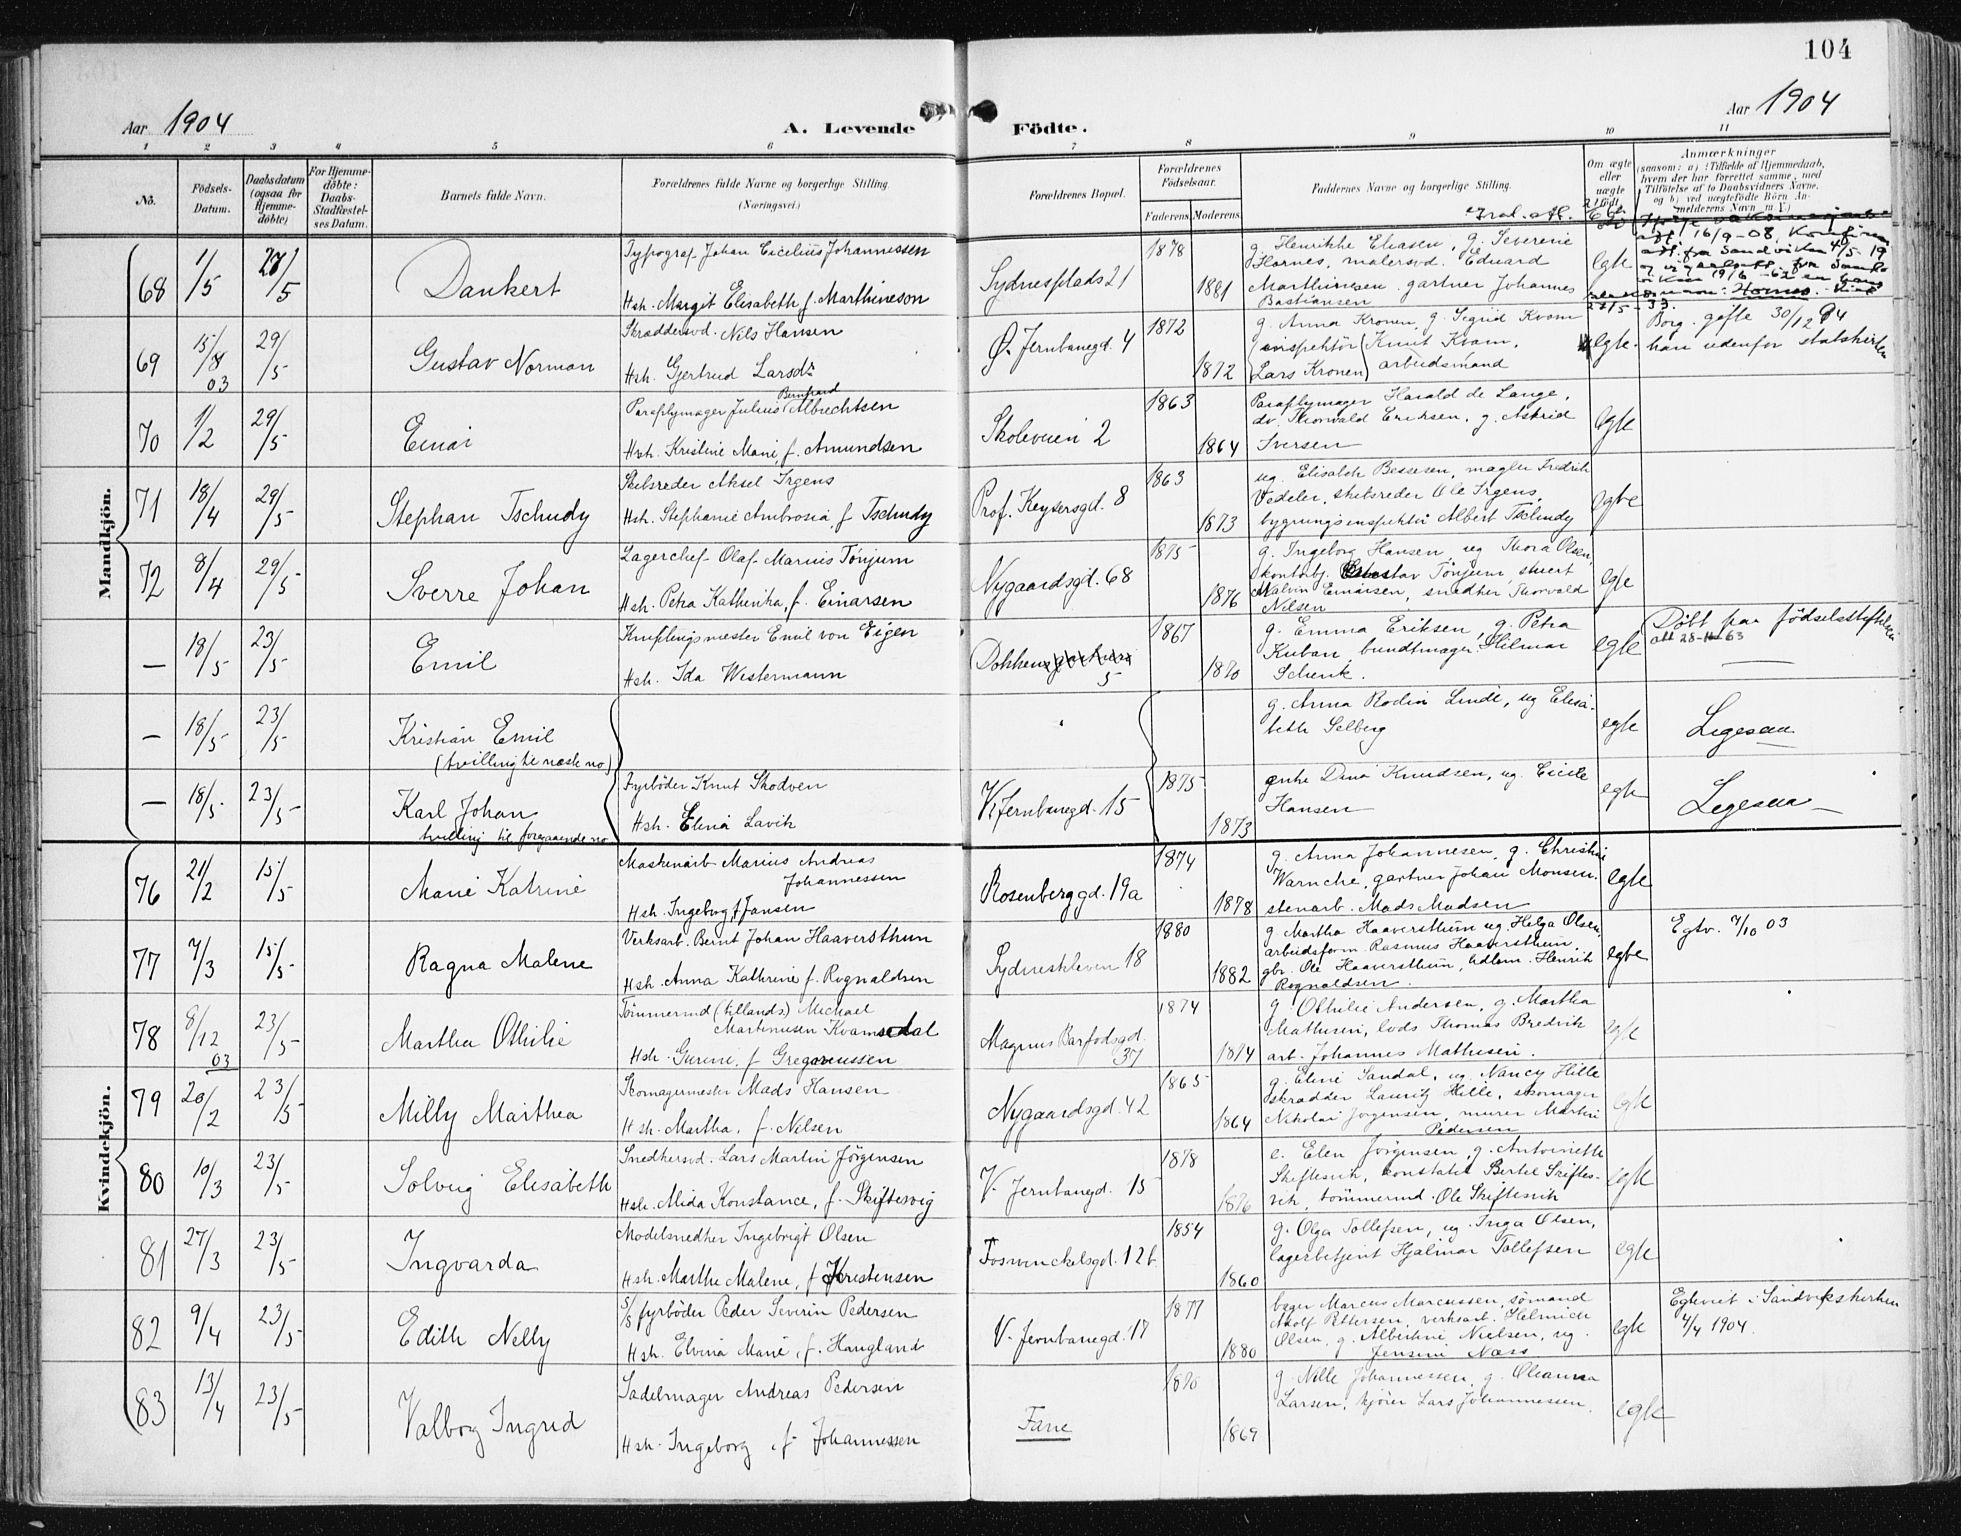 104
Aar 1904
A. Levende Födte.
Aar 1904
1 2 3 4 5 6 7 8 9 10 11
No.
Födsels-Datum.
Daabsdatum (ogsaa for Hjemmedöbte)
For Hjemmedöbte: Daabs-Stadfæstelses Datum.
Barnets fulde Navn.
Forældrenes fulde Navne og borgerlige Stilling.
(Næringsvei.)
Forældrenes Bopæl.
Forældrenes Födselsaar.
Faderens Moderens
Faddernes Navne og borgerlige Stilling.
Om ægte eller uægte födt.
Anmærkninger
(saasom: a) i Tilfælde af Hjemmedaab, hvem der har forrettet samme, med Tilföielse af to Daabsvidners Navne, og b) ved uægtefödte Börn Anmelderens Navn m. V.)
Mandkjön.
68 1/5 27/5 Dankert
Typograf Johan Cicelius Johannessen
Hsh. Margit Elisabeth f. Marthineson
Sydnesplads 21
1878 1881
g. Henrikke Eliasen, g. Severine
Hornes, malersvd. Eduard
Marthinesen, gartner Johannes
Bastiansen
egte
att. 16/9-08
att. fra Sandviken 4/5-19
69 15/8 03 29/5 Gustav Norman
Skræddersvd. Nils Hansen
Hsh. Gjertrud Larsdt.
Ø. Jernbanegd. 4
1872 1872
g. Anna Kronen, g. Sigrid Kvam
(inspektör Knut Kvam,
Lars Kronen) arbeidsmand
egte.
Borg. gifte 30/12 94
han udenfor statskirken
70 1/2 29/5 Einar
Paraplymager Julius Bernhard Albrechtsen
Hsh. Kristine Marie, f. Amundsen
Skoleveien 2
1863 1864
Paraplymager Harald de Lange,
do. Thorvald Eriksen, g. Astrid
Iversen
egte
71 18/4 29/5 Stephan Tschudy
Skibsreder Aksel Irgens
Hsh. Stephanie Ambrosia, f. Tschudy
Prof. Keysersgd. 8
1863 1873
ug. Elisabeth Bessesen, mægler Fredrik
Vedeler, skibsreder Ole Irgens,
bygningsinspektör Albert Tschudy
egte
72 8/4 29/5 Sverre Johan
Lagerchef Olaf Marius Tönjum
Hsh. Petra Kathinka, f. Einarsen
Nygaardsgd. 68
1875 1876
g. Ingeborg Hansen, ug Thora Olsen,
kontorbj. Gustav Tönjum, stuert
Malvin Einarsen, snedker Thorvald
Nilsen
egte
— 18/5 23/5 Emil
Knuplingsmester Emil von Eigen
Hsh. Ida Westermann
Dokken 5
1867 1870
g. Emma Eriksen, g. Petra
Kuban, bundtmager Hilmar
Schenk.
egte
Döbt paa födselsstiftelsen
— 18/5 23/5 Kristian Emil
(tvilling til næste no)
g. Anna Rodin Lunde, ug Elisa-
beth Selberg
egte
Ligesaa
— 18/5 23/5 Karl Johan
tvilling til foregaaende no
Fyrböder Knut Skodven
Hsh. Elina Lavik
V. Jernbanegd. 15
1875 1873
enke Dina Knudsen, ug. Cicile
Hansen
egte
Ligesaa
Kvindekjön.
76 21/2 15/5 Marie Katrine
Maskinarb Marius Andreas
Johannessen
Hsh. Ingeborg f Jansen
Rosenberggd. 19a
1874 1878
g. Anna Johannesen, g. Christine
Warncke, gartner Johan Monsen,
stenarb. Mads Madsen
egte
77 7/3 15/5 Ragna Malene
Verksarb. Bernt Johan Haaversthun
Hsh. Anna Kathrine f. Rognaldsen
Sydneskleven 18
1880 1882
g. Martha Haaversthun ug. Helga Olsen,
arbeidsform. Rasmus Haaversthun,
gbr. Ole Haaversthun, udlom. Henrik
Rognaldsen.
egte
Egtv. 7/10 03
78 8/12 03 23/5 Martha Othilie
Tömmermd (tillands) Michael
Martinusen Kvamsdal
Hsh. Gurine, f Gregoriussen
Magnus Barfodsgd. 37
1874 1874
g. Othilie Andersen, g. Martha
Mathisen, lods Thomas Bredvik
arb. Johannes Mathisen.
egte
79 20/2 23/5 Milly Marthea
Skomagermester Mads Hansen
Hsh. Martha, f. Nilsen
Nygaardsgd. 42
1865 1864
g. Eline Sandal, ug Nancy Hille
skrædder Lauritz Hille, skomager
Nikolai Jörgensen, murer Martin
Pedersen
egte
80 10/3 23/5 Solveig Elisabeth
Snedkersvd. Lars Martin Jörgensen
Hsh. Mida Konstance, f. Skiftesvig
V. Jernbanegd. 15
1878 1876
e. Elen Jörgensen, g. Antoinette
Skiftesvik, konstabel Bertel Skiftes-
vik, tömmermd. Ole Skiftesvik
egte
81 27/3 23/5 Ingvarda
Modelsnedker Ingebrigt Olsen
Hsh. Marthe Malene, f Kristensen
Fosswinckelsgd. 12b
1854 1860
g. Olga Tollefsen, ug. Inga Olsen,
lagerbetjent Hjalmar Tollefsen
egte
82 9/4 23/5 Edith Nelly
S/S fyrböder Peder Severin Pedersen
Hsh. Elvina Marie, f. Haugland
V. Jernbanegd. 17
1877 1880
bager Marcus Marcussen, sömand
Adolf Pettersen, verksarb. Helmich
Olsen, g. Albertine Nielsen, ug.
Jensine Næss
egte
Egteviet i Sandvikskirken
4/4 1904
83 13/4 23/5 Valborg Ingrid
Sadelmager Andreas Pedersen
Hsh. Ingeborg, f. Johannessen
Fane
1870 1869
g. Nille Johannessen, g. Oleanna
Larsen, kjörer Lars Johannessen.
egte